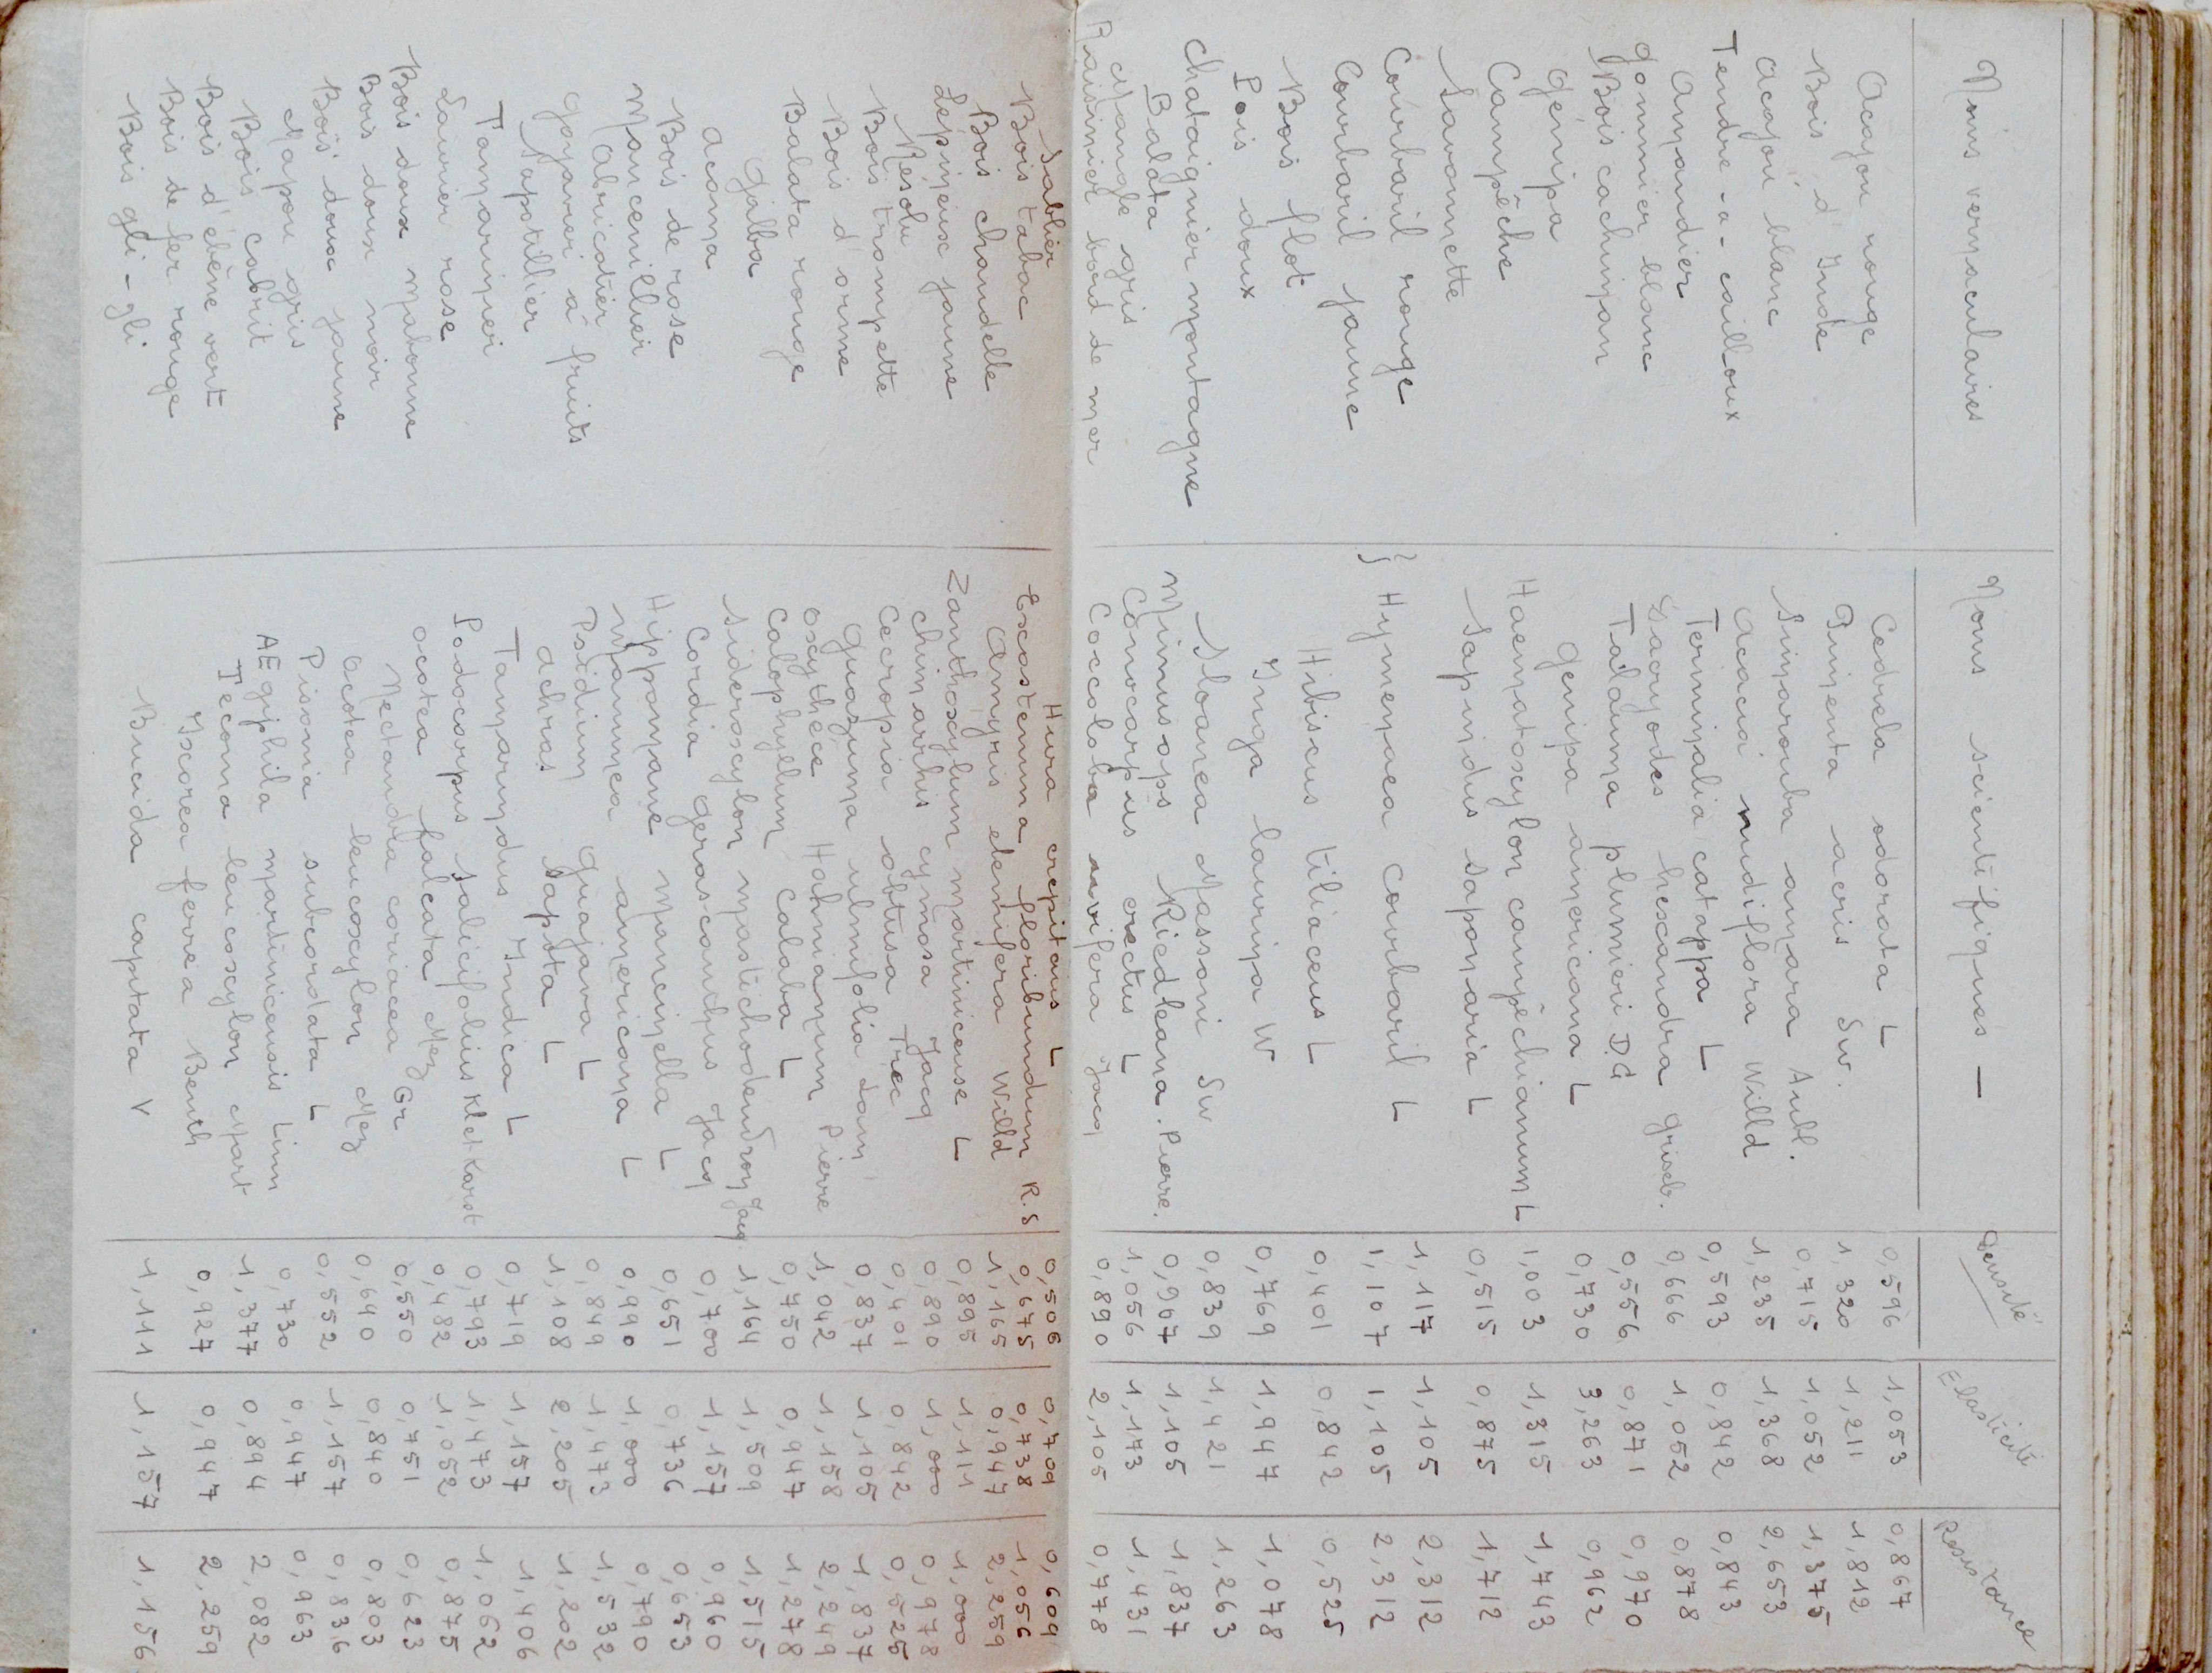 Noms vernaculaires Noms scientifiques — Densité Elasticité Résistance
Acajou rouge Cedrela odorata L 0,596 1,053 0,867
Bois d'Inde Pimenta acris Sw. 1,320 1,211 1,812
Acajou blanc Simarouba amara Aubl. 0,715 1,052 1,375
Tendre-a-cailloux Acacia nudiflora Willd 1,235 1,368 2,653
Amandier Terminalia catappa L 0,593 0,842 0,843
Gommier blanc Dacryodes hexandra Griseb. 0,666 1,052 0,878
Bois cachiman Talauma plumieri D.G 0,556 0,871 0,970
Génipa Genipa americana L 0,730 3,263 0,962
Campêche Haematoxylon campêchianum L 1,003 1,315 1,743
Savonnette Sapindus saponaria L 0,515 0,875 1,712
Courbaril rouge } Hymenaea courbaril L 1,117 1,105 2,312
Courbaril jaune 1,107 1,105 2,312
Bois flot Hibiscus tiliaceus L 0,401 0,842 0,525
Pois doux Inga laurina W 0,769 1,947 1,078
Chataignier montagne Sloanea Massoni Sw 0,839 1,421 1,263
Balata Mimusops Riedleana. Pierre. 0,907 1,105 1,837
Mangle gris Conocarpus erectus L 1,056 1,173 1,431
Raisinier bord de mer Coccoloba uvifera Jacq 0,890 2,105 0,778
Sablier Hura crepitans L 0,506 0,709 0,609
Bois tabac Excostemma floribundum R.S 0,675 0,738 1,056
Bois chandelle Amyris elemifera Willd 1,165 0,947 2,259
Lépineux jaune Zanthoxylum martinicense L 0,895 1,111 1,000
Résolu Chimarrhis cymosa Jacq 0,890 1,000 0,978
Bois trompette Cecropia obtusa Trec 0,401 0,842 0,525
Bois d'orme Guazuma ulmifolia Lam, 0,837 1,105 1,837
Balata rouge Oxythece Hahnianum Pierre 1,042 1,158 2,249
Galba Calophyllum Calaba L 0,750 0,947 1,278
Acoma Sideroxylon mastichodendron Jacq 1,164 1,509 1,515
Bois de rose Cordia gerascanthus Jacq 0,700 1,157 0,960
Mancenillier Hippomane mancinella L 0,651 0,736 0,653
Abricotier Mammea americana L 0,990 1,000 0,790
Goyavier à fruits Psidium Guajava L 0,849 1,473 1,532
Sapotillier Achras Sapota L 1,108 2,205 1,202
Tamarinier Tamarindus Indica L 0,719 1,157 1,406
Laurier rose Podocarpus salicifolius Kl et Karst 0,793 1,473 1,062
Bois doux Ocotea falcata Mez 0,482 1,052 0,875
Bois doux noir Nectandra coriacea Gr 0,550 0,751 0,623
Bois doux jaune Ocotea leucoxylon Mez 0,690 0,840 0,803
Mapou gris Pisonia subcordata L 0,552 1,157 0,836
Bois cabrit AEgiphila martinicensis Linn 0,730 0,947 0,963
Bois d'ébène vert Tecoma leucoxylon Mart 1,377 0,894 2,082
Bois de fer rouge Ixorea ferrea Benth 0,927 0,947 2,259
Bois gli-gli Bucida capitata V 1,111 1,157 1,156